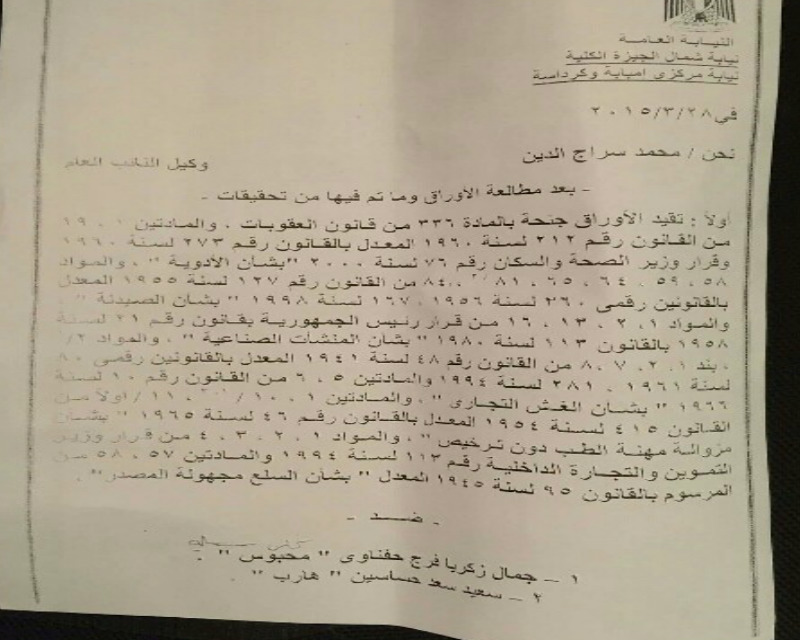 النيابة العامة
نيابة شمال الجيزة الكلية
نيابة مركزى امبابة وكرداسة
فى ٢٠١٥/٣/٢٨
نحن / محمد سراج الدين وكيل النائب العام
- بعد مطالعة الأوراق وما تم فيها من تحقيقات -
أولاً : تقيد الأوراق جنحة بالمادة ٣٣٦ من قانون العقوبات ، والمادتين ١ ، ١٩
من القانون رقم ٢١٢ لسنة ١٩٦٠ المعدل بالقانون رقم ٢٧٣ لسنة ١٩٦٠
وقرار وزير الصحة والسكان رقم ٧٦ لسنة ٢٠٠٠ "بشأن الأدوية" ، والمواد
٥٨ ، ٥٩ ، ٦٤ ، ٦٥ ، ٨١ ، ٨٤ من القانون رقم ١٢٧ لسنة ١٩٥٥ المعدل
بالقانونين رقمى ٣٦٠ لسنة ١٩٥٦ ، ١٦٧ لسنة ١٩٩٨ " بشأن الصيدلة "
والمواد ١ ، ٢ ، ١٣ ، ١٦ من قرار رئيس الجمهورية بقانون رقم ٢١ لسنة
١٩٥٨ بالقانون ١١٣ لسنة ١٩٨٠ " بشأن المنشآت الصناعية " ، والمواد ٢/
، بند ١ ، ٢ ، ٧ ، ٨ من القانون رقم ٤٨ لسنة ١٩٤١ المعدل بالقانونين رقمى ٨٠
لسنة ١٩٦١ ، ٢٨١ لسنة ١٩٩٤ والمادتين ٥ ، ٦ من القانون رقم ١٠ لسنة
١٩٦٦ " بشأن الغش التجارى " ، والمادتين ١ ، ١٠ / ١١ / أولاً من
القانون ٤١٥ لسنة ١٩٥٤ المعدل بالقانون رقم ٤٦ لسنة ١٩٦٥ " بشأن
مزوالة مهنة الطب دون ترخيص " ، والمواد ١ ، ٢ ، ٣ ، ٤ من قرار وزير
التموين والتجارة الداخلية رقم ١١٣ لسنة ١٩٩٤ والمادتين ٥٧ ، ٥٨ من
المرسوم بالقانون ٩٥ لسنة ١٩٤٥ المعدل " بشأن السلع مجهولة المصدر" .
- ضــد -
١ – جمال زكريا فرج حفناوى " محبوس " .
٢ – سعيد سعد حساسين " هارب " .